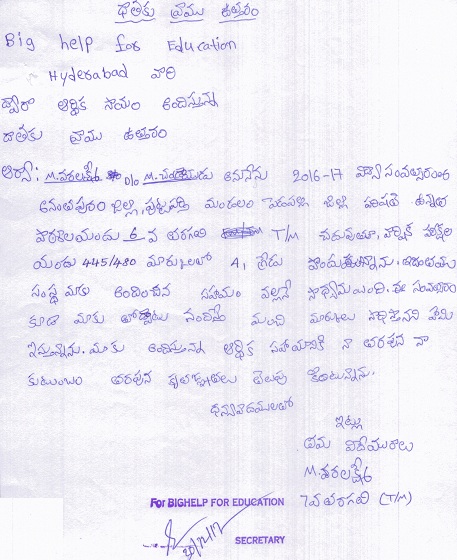 దాతకు వ్రాయు ఉత్తరం
Big help for Education
Hyderabad వారి
ద్వారా ఆర్థిక సాయం అందిస్తున్న
దాతకు వ్రాయు ఉత్తరం
M. వరలక్ష్మి D/o M. అనునేను 2016-17 విద్యా సంవత్సరంలో
అనంతపురం జిల్లా, పుట్టపర్తి మండలం జిల్లా పరిషత్ ఉన్నత
పాఠశాలయందు 6 వ తరగతి T/M చదువుతూ, వార్షిక పరీక్షల
యందు 445/480 మార్కులతో A1 గ్రేడు పొందుతున్నాను.
సంస్థ మాకు అందించిన సహాయం వల్లనే సాధ్యమైంది. ఈ సంవత్సరం
కూడా మాకు తోడ్పాటు నందిస్తే మంచి మార్కులు సాధిస్తానని హామీ
ఇస్తున్నాను. మాకు అందిస్తున్న ఆర్థిక సహాయానికి నా తరపున నా
కుటుంబం తరపున కృతజ్ఞతలు తెలుపు కొంటున్నాను.
ధన్యవాదములతో
ఇట్లు
తమ విధేయురాలు
M. వరలక్ష్మి
7వ తరగతి (T/M)
For BIGHELP FOR EDUCATION
SECRETARY